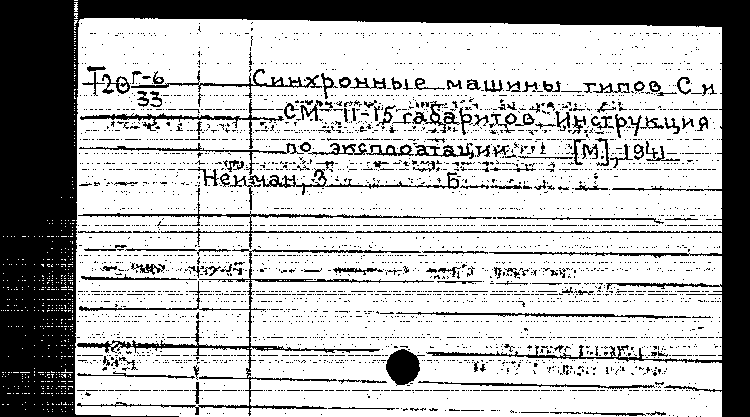 Т20 Г-6/33 Синхронные машины типов С и
СМ 11-15 габаритов. Инструкция
по эксплоатации [М], 1941
Нейман, З Б